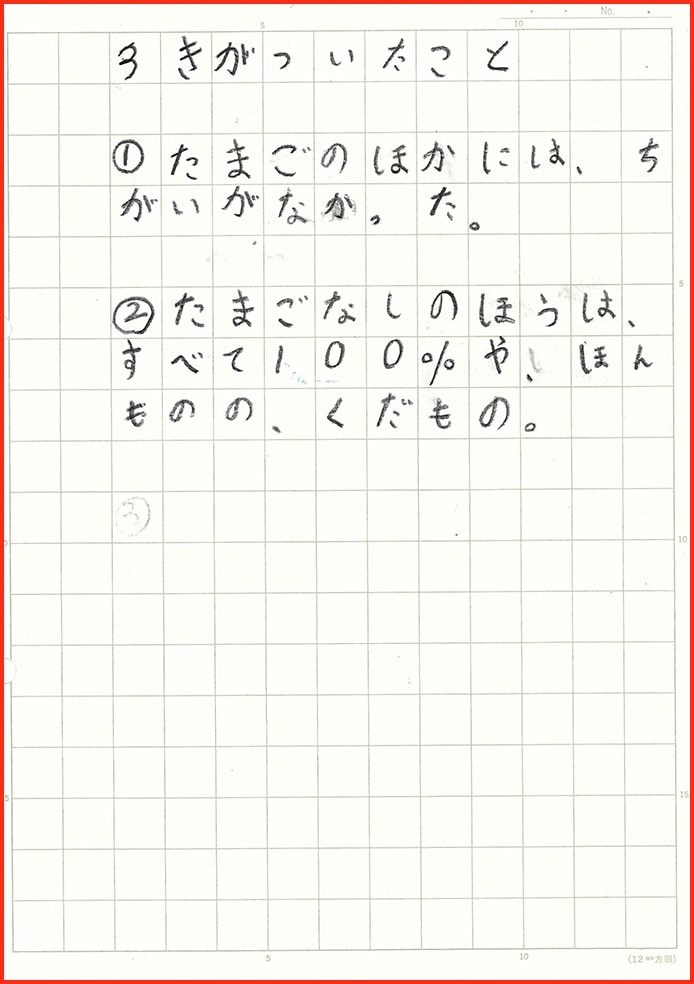 No.
5 10
3 きがついたこと
① たまごのほかには、ち
がいがなかった。
5
② たまごなしのほうは、
すべて100%や、ほん
ものの、くだもの。
③
10
5 15
5 10 (12mm方眼)